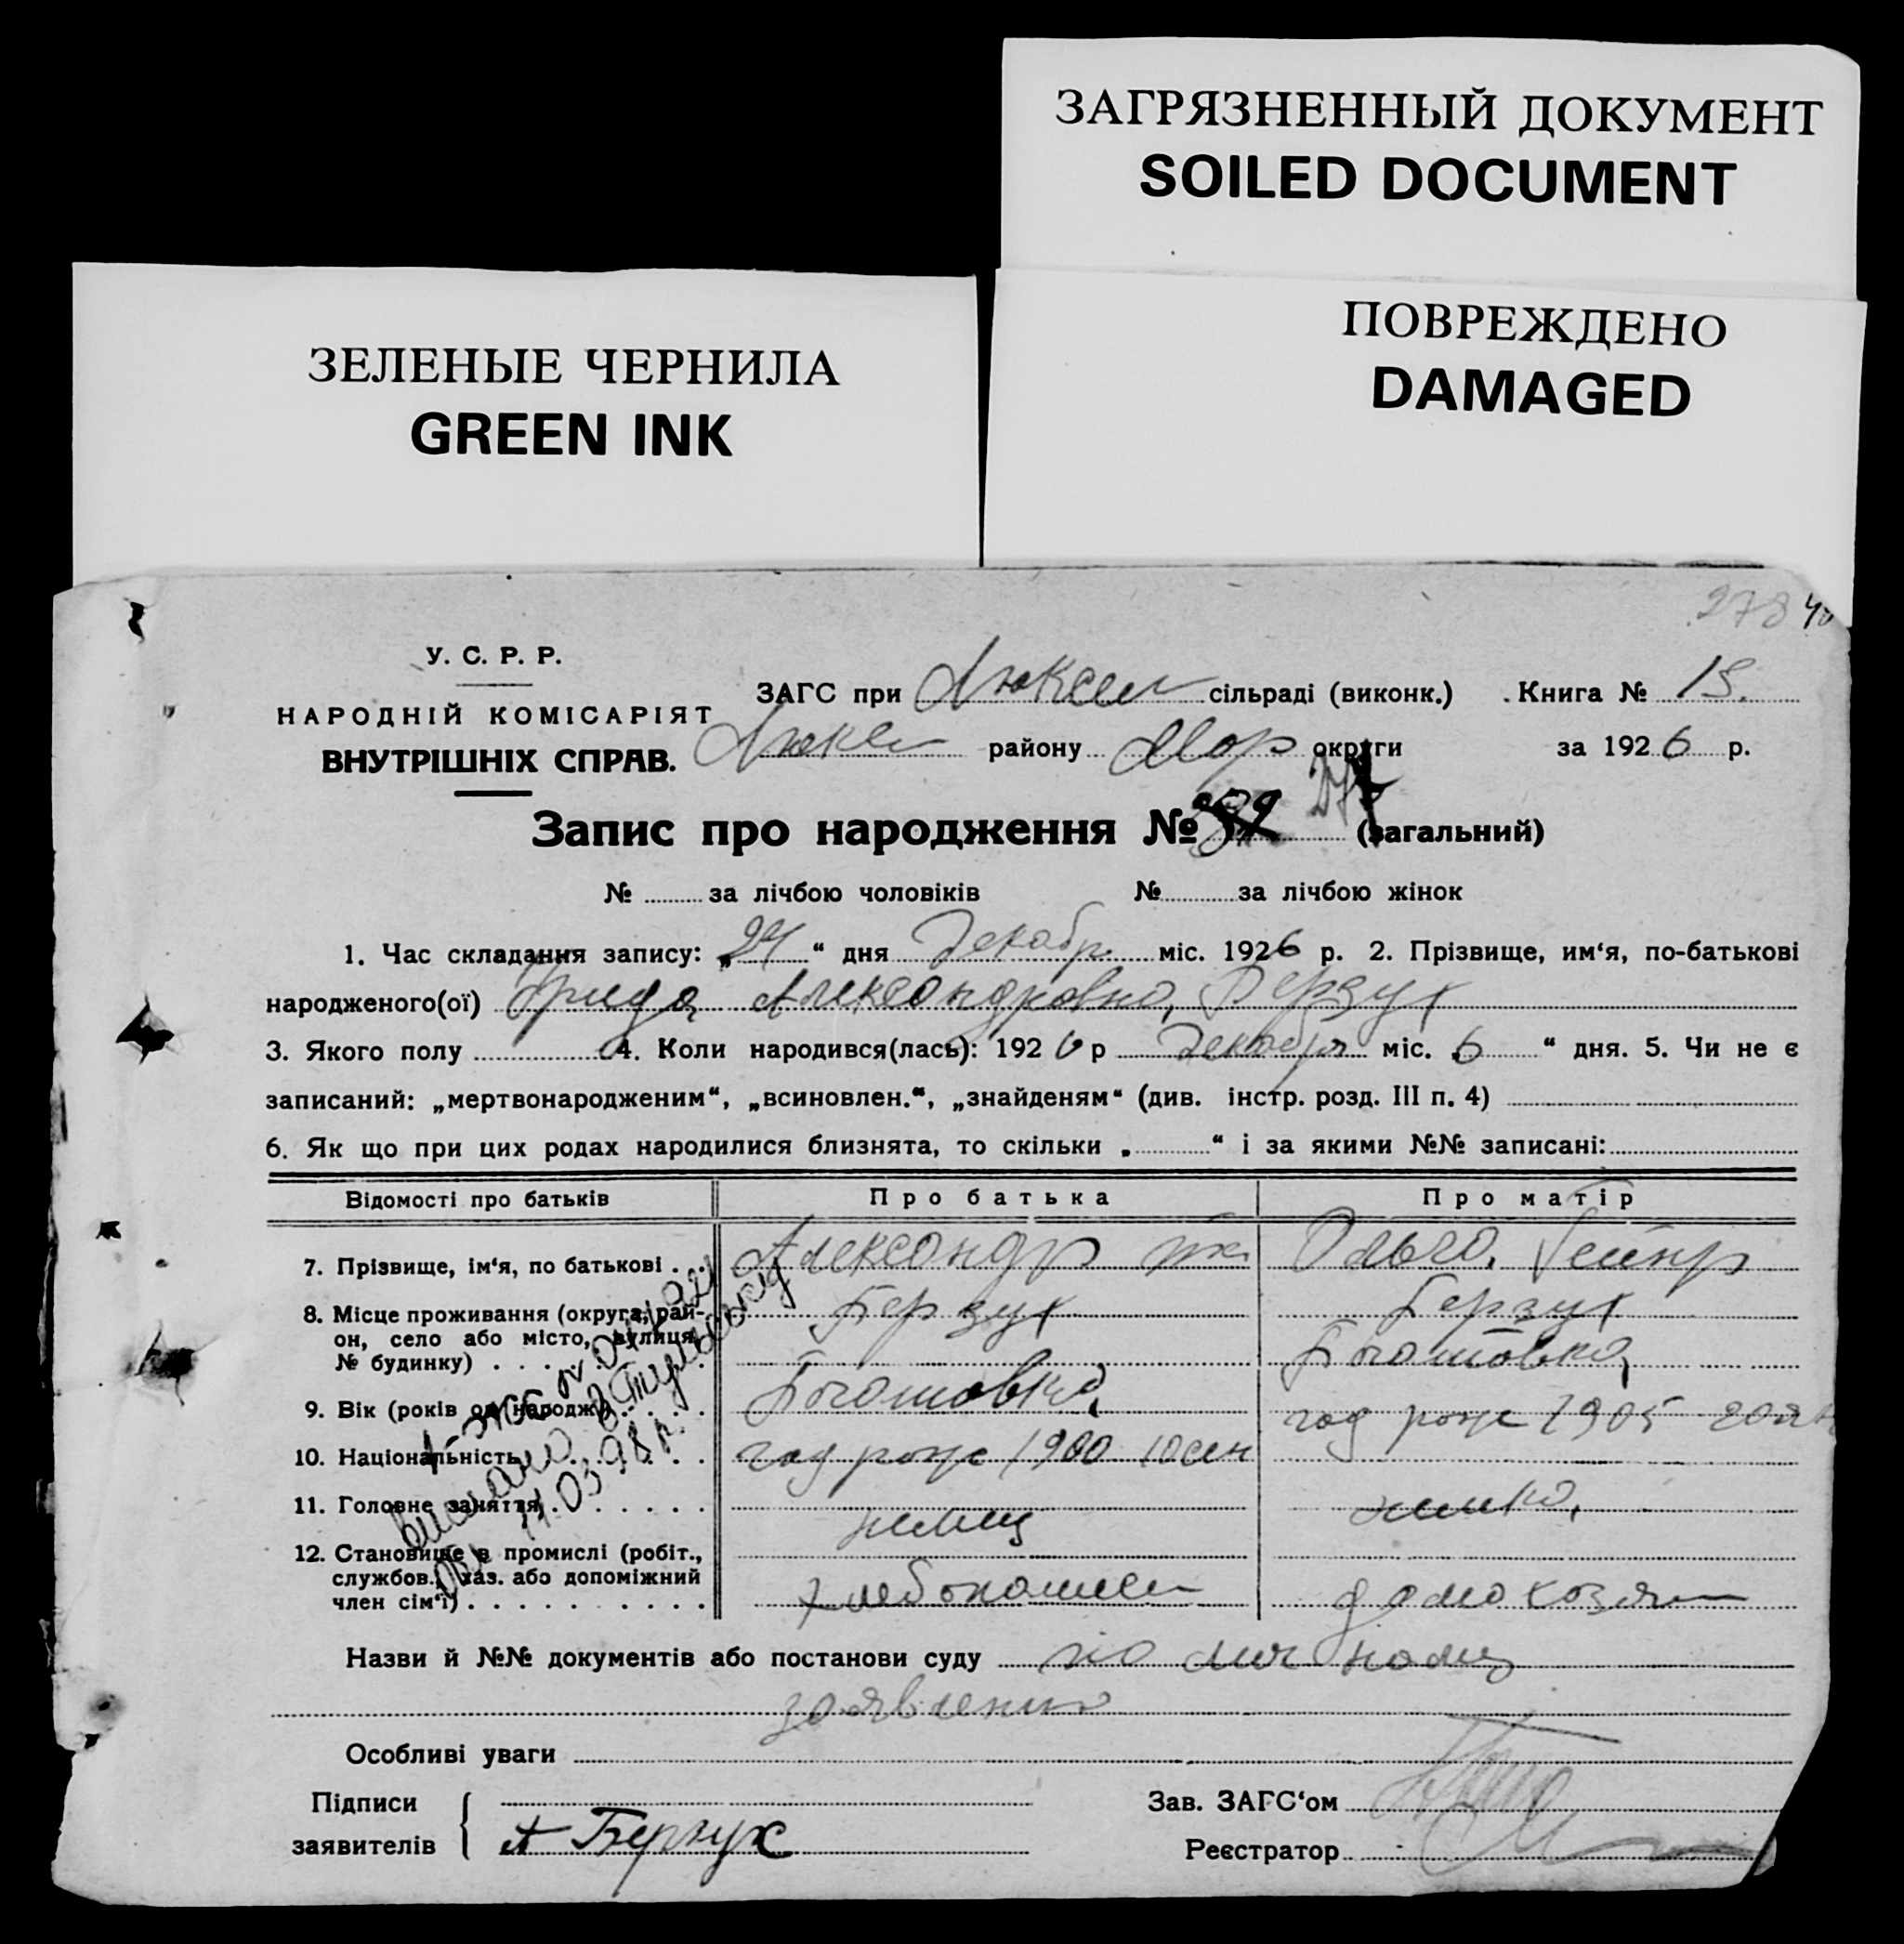 ЗАГРЯЗНЕННЫЙ ДОКУМЕНТ
SOILED DOCUMENT
ПОВРЕЖДЕНО
DAMAGED
ЗЕЛЕНЫЕ ЧЕРНИЛА
GREEN INK
278
У. С. Р. Р.
НАРОДНІЙ КОМІСАРІЯТ
ВНУТРІШНІХ СПРАВ.
ЗАГС при Люксем сільраді (виконк.) Книга № 15.
Люкс района Мар округи за 1926 р.
Запис про народження № 277 (загальний)
№ ........ за лічбою чоловіків № ........ за лічбою жінок
1. Час складання запису: „24“ дня Декабр. міс. 1926 р. 2. Прізвище, им‘я, по-батькові
народженого(ої) Фрида Александровна, Берзух
3. Якого полу ........ 4. Коли народився(лась): 1926 р Декабря міс. „6 “ дня. 5. Чи не є
записаний: „мертвонародженим“, „всиновлен.“, „знайденям“ (див. інстр. розд. III п. 4)
6. Як що при цих родах народилися близнята, то скільки „........“ і за якими №№ записані:
Відомості про батьків Про батька Про матір
7. Прізвище, ім‘я, по батькові . . Александр Ольга,
8. Місце проживання (округа, рай-
он, село або місто, вулиця,
№ будинку) . . . . Берзух Берзух
Боготовка,
9. Вік (років од народж.) . . . . Боготовка,
год рож 1905
10. Національність . . . . год рож 1900 10 сен
11. Головне заняття . . . . . . . німец німка,
12. Становище в промислі (робіт.,
службов., хаз. або допоміжний
член сім‘ї) . . . . . . . . . . хлебопашец домохозяй
Видано
11.03.98 р.
Назви й №№ документів або постанови суду по личному
заявлению
Особливі уваги
Підписи
заявителів А Берзух
Зав. ЗАГС‘ом
Реєстратор